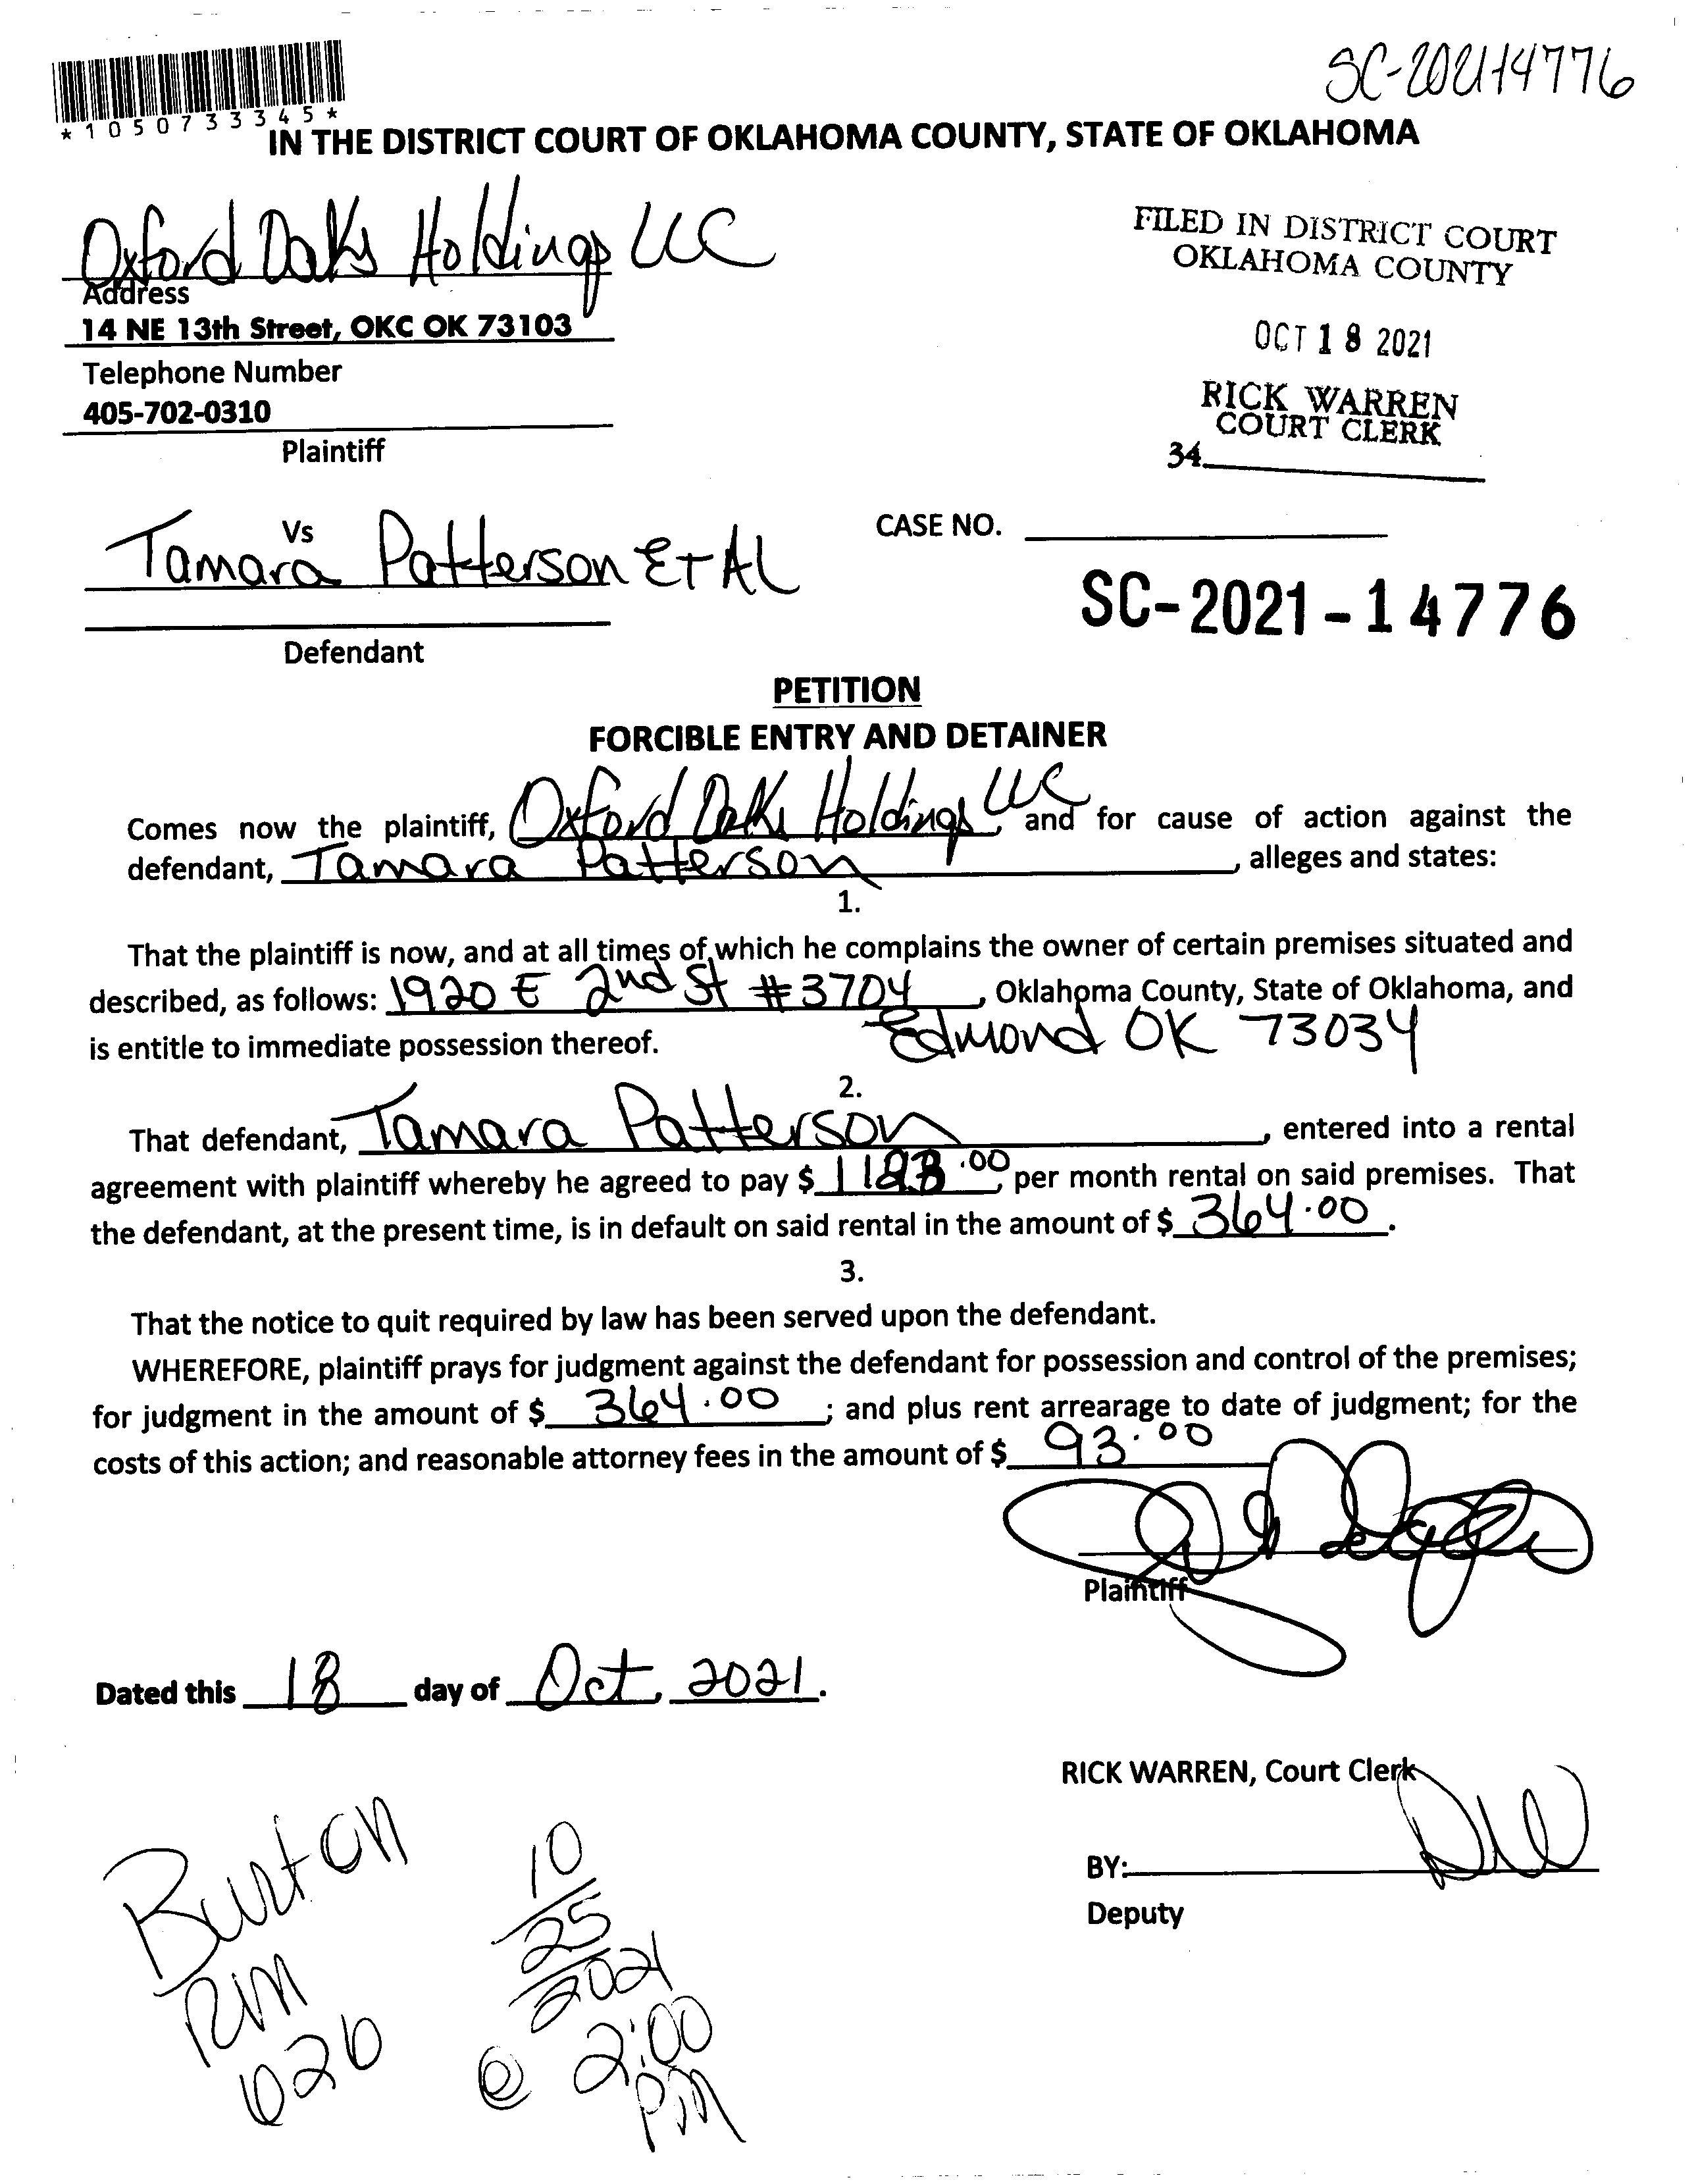 SC-2021-14776
*1050733345*
IN THE DISTRICT COURT OF OKLAHOMA COUNTY, STATE OF OKLAHOMA
Oxford Oaks Holdings LLC
Address
14 NE 13th Street, OKC OK 73103
Telephone Number
405-702-0310
Plaintiff
FILED IN DISTRICT COURT
OKLAHOMA COUNTY
OCT 18 2021
RICK WARREN
COURT CLERK
34
Vs
Tamara Patterson Et Al
Defendant
CASE NO.
SC-2021-14776
PETITION
FORCIBLE ENTRY AND DETAINER
Comes now the plaintiff, Oxford Oaks Holdings LLC, and for cause of action against the
defendant, Tamara Patterson, alleges and states:
1.
That the plaintiff is now, and at all times of which he complains the owner of certain premises situated and
described, as follows: 1920 E 2nd St #3704, Oklahoma County, State of Oklahoma, and
is entitle to immediate possession thereof. Edmond OK 73034
2.
That defendant, Tamara Patterson, entered into a rental
agreement with plaintiff whereby he agreed to pay $ .00 per month rental on said premises. That
the defendant, at the present time, is in default on said rental in the amount of $ 364.00.
3.
That the notice to quit required by law has been served upon the defendant.
WHEREFORE, plaintiff prays for judgment against the defendant for possession and control of the premises;
for judgment in the amount of $ 364.00; and plus rent arrearage to date of judgment; for the
costs of this action; and reasonable attorney fees in the amount of $ 93.00
Plaintiff
Dated this 18 day of Oct, 2021.
RICK WARREN, Court Clerk
BY:
Deputy
Burton
RM
10
25
2021
@ 2:00
PM